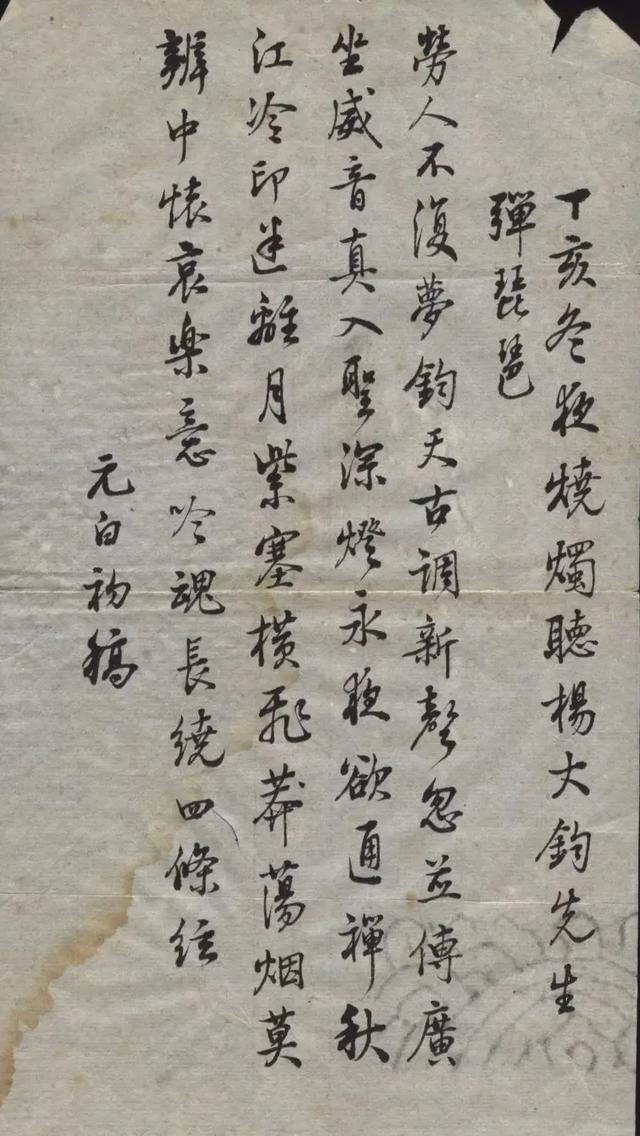 丁亥冬夜燒燭聽楊大鈞先生
彈琵琶
勞人不復夢鈞天古調新聲忽並傳廣
坐威音真入聖深燈永夜欲通禪秋
江冷印迷離月紫塞橫飛莽蕩烟莫
辨中懷哀樂意吟魂長繞四條絃
元白初稿